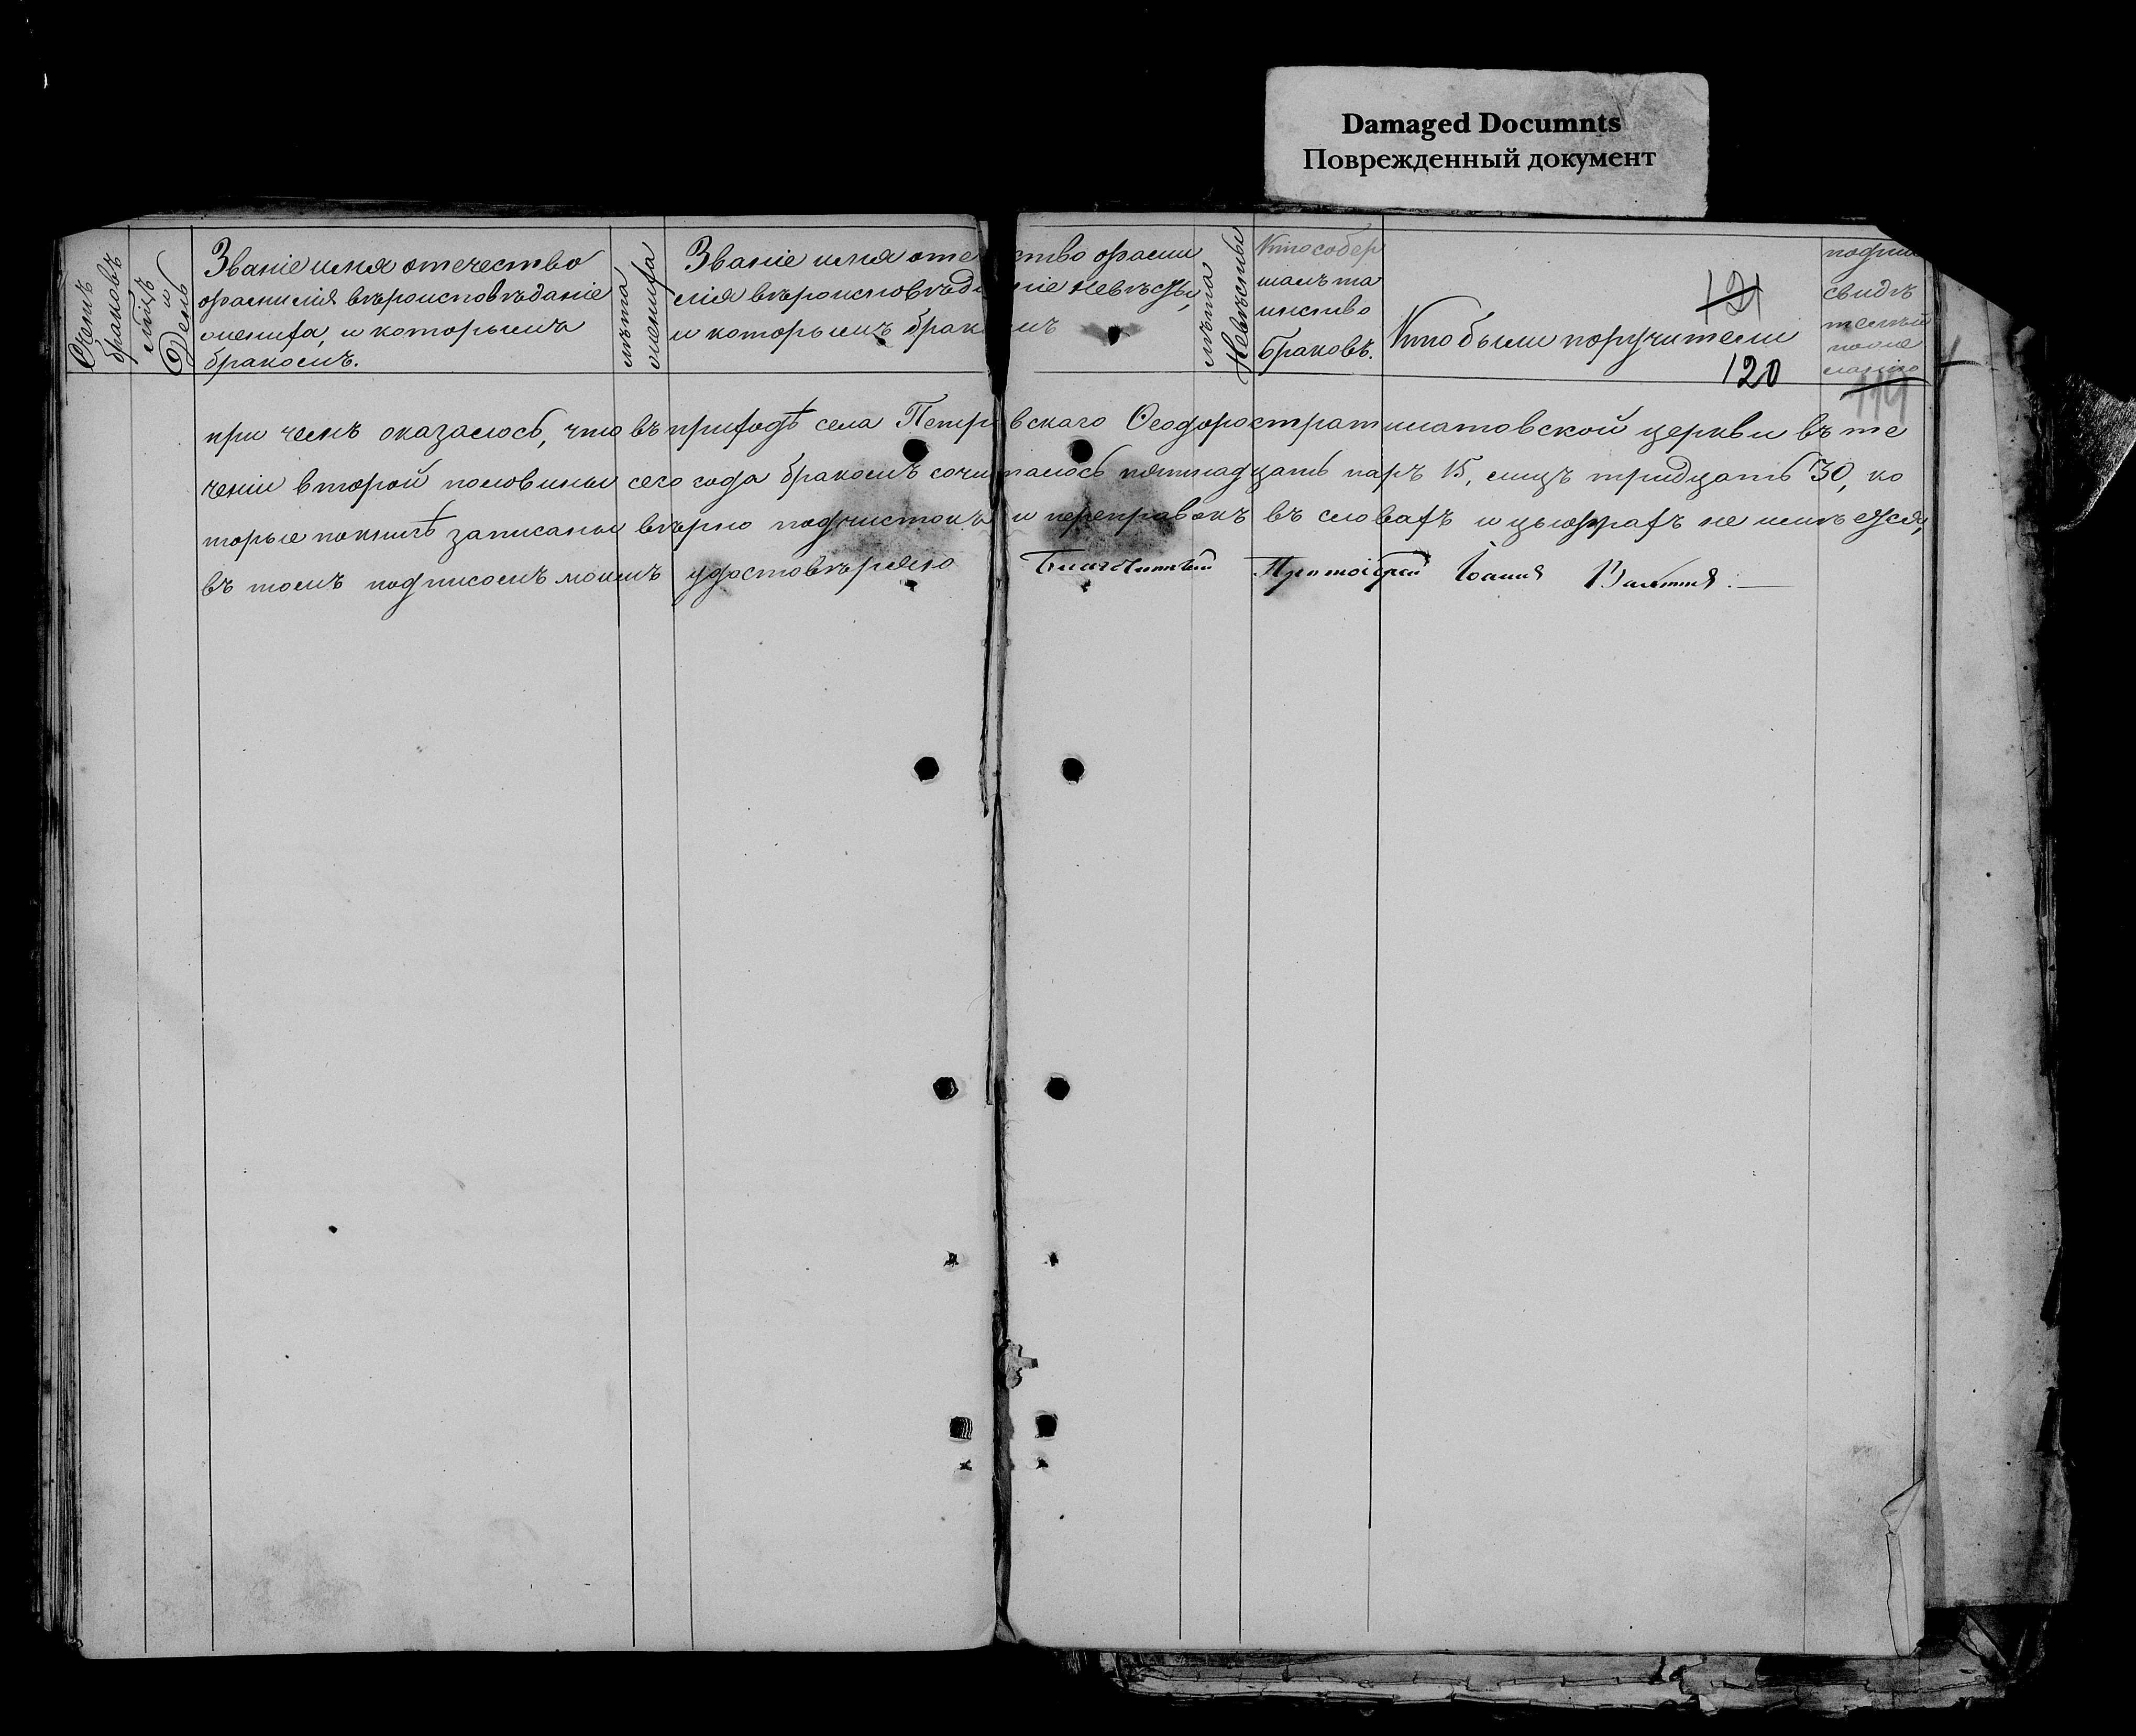 Damaged Documnts
Поврежденный документ
Счетъ браковъ
мѣсяцъ и День
Званіе имя отечество
фамилія вѣроисповѣданіе
жениха, и которымъ
бракомъ.
лѣта жениха
Званіе имя отечество фами
лія вѣроисповѣданіе невѣсты,
и которымъ бракомъ
лѣта Невѣсты
Кто совер
шалъ та
инство
браковъ.
121
Кто были поручители
120
подпис
свидѣ
телей
по же
ланію
119
при чемъ оказалось, что въ приходѣ села Петровскаго Ѳеодоростратилатовской церкви въ те
ченіи второй половины сего года бракомъ сочиталось пятнадцать паръ 15, лицъ тридцать 30, ко
торые по книгѣ записаны вѣрно подчистокъ и переправокъ въ словахъ и цыфрахъ не имѣется,
въ томъ подписомъ моимъ удостовѣряю Благочинный Протоіерей Іоаннъ